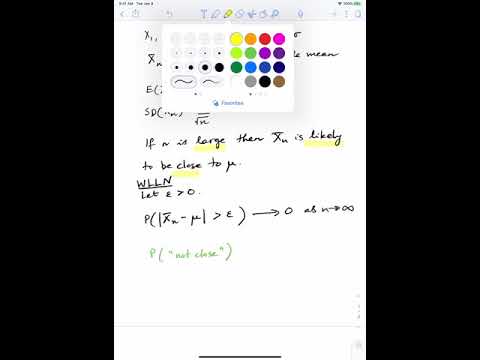 9:41 AM Tue Jan 9
X₁,
X̄ₙ mean
E(
SD( √n
Favorites
If n is large then X̄ₙ is likely
to be close to μ.
WLLN
Let ε > 0.
P(|X̄ₙ - μ| > ε) → 0 as n→∞
P("not close")